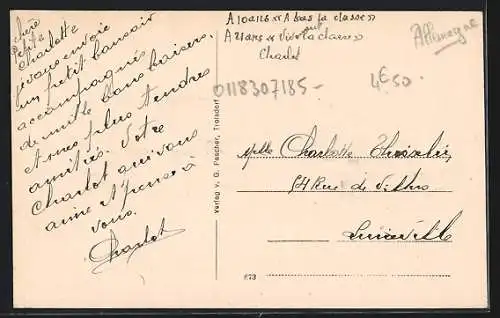 chère
Petite
Charlotte
je vous envoie
un petit bonsoir
accompagnés
de mille bons baisers.
et mes plus tendres
amitiés. Votre
Charlot qui vous
aime et pense à
vous.
Charlot
A 10 ans A bas la classe
A 21 ans Vive la classe
Charlot
Allemagne
0118307185-
4€50
Verlag v. G. Pescher, Troisdorf
Mlle Charlotte
54 Rue de
Lunéville
673